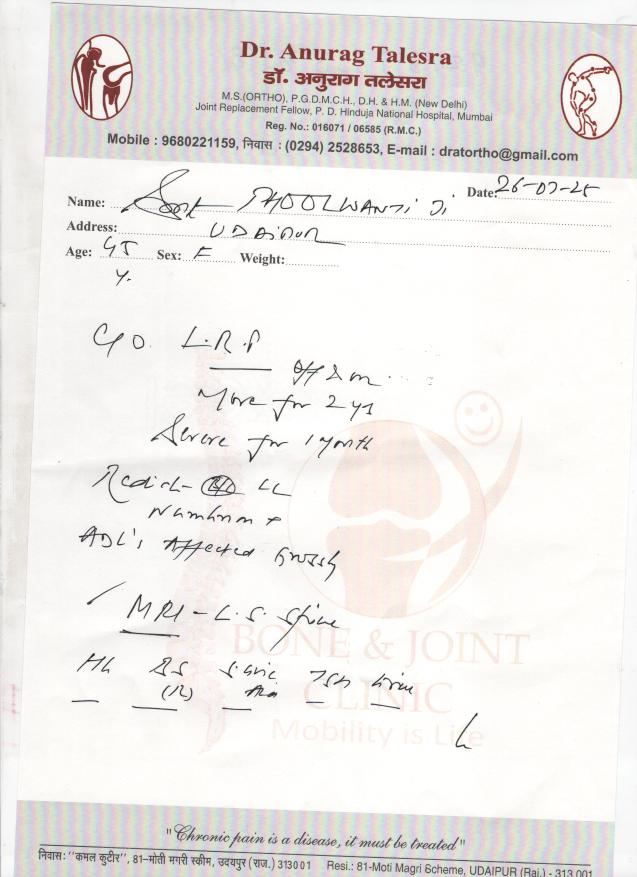 Dr. Anurag Talesra
डॉ. अनुराग तलेसरा
M.S.(ORTHO), P.G.D.M.C.H., D.H. & H.M. (New Delhi)
Joint Replacement Fellow, P. D. Hinduja National Hospital, Mumbai
Reg. No.: 016071 / 06585 (R.M.C.)
Mobile : 9680221159, निवास : (0294) 2528653, E-mail : dratortho@gmail.com
Date: 26-07-25
Name: PHOOLWANTI Ji
Address: UDAIPUR
Age: 45 Sex: F Weight:
Y.
C/O. L.B.P
off & on
More for 2 yrs
Severe for 1 month
LL
Numbness +
ADL's Affected Grossly
MRI - L.S. Spine
BS S. Uric TSH Urine
(R)
BONE & JOINT
CLINIC
Mobility is Life
"Chronic pain is a disease, it must be treated"
निवास: "कमल कुटीर", 81-मोती मगरी स्कीम, उदयपुर (राज.) 313001 Resi.: 81-Moti Magri Scheme, UDAIPUR (Raj.) - 313 001